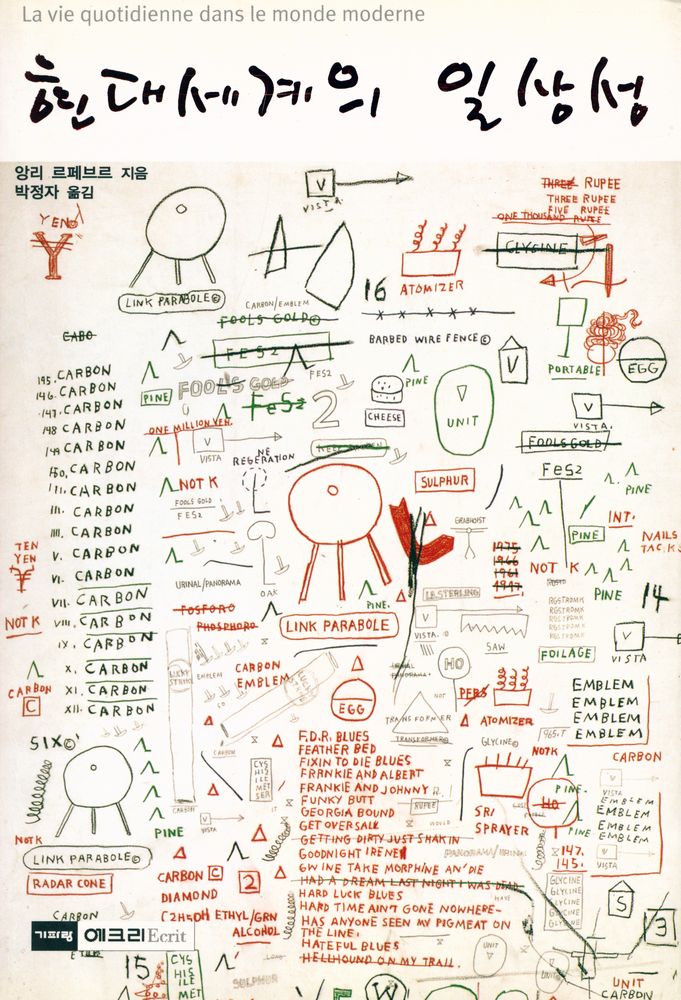 La vie quotidienne dans le monde moderne
현대세계의 일상성
앙리 르페브르 지음
박정자 옮김
YEN
Y
V
VISTA
THREE RUPEE
THREE RUPEE
FIVE RUPEE
ONE THOUSAND RUPEE
GLYCINE
LINK PARABOLE©
CARBON/EMBLEM
FOOLS GOLD©
16
ATOMIZER
CABO
FES2
BARBED WIRE FENCE©
V
PORTABLE
EGG
FES2
195. CARBON
146. CARBON
147. CARBON
148 CARBON
149 CARBON
150. CARBON
II. CARBON
III. CARBON
III. CARBON
V. CARBON
VI. CARBON
VII. CARBON
VIII. CARBON
IX. CARBON
X. CARBON
XI. CARBON
XII. CARBON
PINE
FOOL'S GOLD
FeS2
2
CHEESE
PINE
UNIT
V
VISTA.
ONE MILLION YEN.
V
VISTA
NE
REGERATION
KEEP FROZEN
FOOLS GOLD/
FeS2
PINE
NOT K
FOOLS GOLD
FES2
SULPHUR
GRIBHOIST
INT.
PINE
NAILS
TACKS
1975
1966
1961
1947.
NOT K
PINE
14
TEN
YEN
URINAL/PANORAMA
OAK
PINE.
NOT K
FOSFORO
PHOSPHORO
LINK PARABOLE
I.B. STERLING
V
VISTA.
SAW
RGSTROMK
RGSTROMK
RGSTROMK
RGSTROMK
FOILAGE
V
VISTA
LUCKY STRIKE
EMBLEM
CARBON
EMBLEM.
HO
NOT
PERS
ATOMIZER
EMBLEM
EMBLEM
EMBLEM
EMBLEM
CARBON
C
EGG
TRANSFORMER
TRANSFORMER
965.T
SIX©
F.D.R. BLUES
FEATHER BED
FIXIN TO DIE BLUES
FRANKIE AND ALBERT
FRANKIE AND JOHNNY
FUNKY BUTT
GEORGIA BOUND
GET OVERSALL
GETTING DIRTY JUST SHAKIN
GOODNIGHT IRENE
GWINE TAKE MORPHINE AN' DIE
HAD A DREAM LAST NIGHT I WAS DEAD
HARD LUCK BLUES
HARD TIME AIN'T GONE NOWHERE-
HAS ANYONE SEEN MY PIGMEAT ON
THE LINE:
HATEFUL BLUES
HELLHOUND ON MY TRAIL.
GLYCINE©
NOT K
CARBON
CARBON
CYS
HIS
ILE
MET
SER
RUPEE
PINE.
HO
VISTA
EMBLEM
EMBLEM
EMBLEM
EMBLEM
CARBON
VISTA
PINE
SRI
SPRAYER
PINE
NOT K
LINK PARABOLE©
PANORAMA/URINAL
147.
145.
VISTA
RADAR CONE
CARBON C
DIAMOND
2
GLYCINE
GLYCINE
GLYCINE
GLYCINE
GLYCINE
S
CARBON
C2H5OH ETHYL/GRN
ALCOHOL
3
기파랑 에크리 Ecrit
15
CYS
HIS
ILE
MET
SULPHUR
UNIT
UNIT
W
UNIT
CARBON